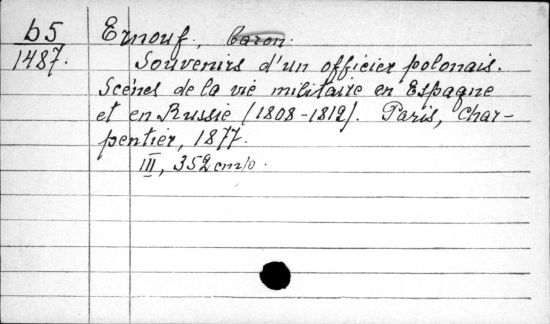 b5
1487.
Ernouf, baron.
Souvenirs d'un officier polonais.
Scènes de la vie militaire en Espagne
et en Russie (1808-1812). Paris, Char-
pentier, 1877.
III, 352